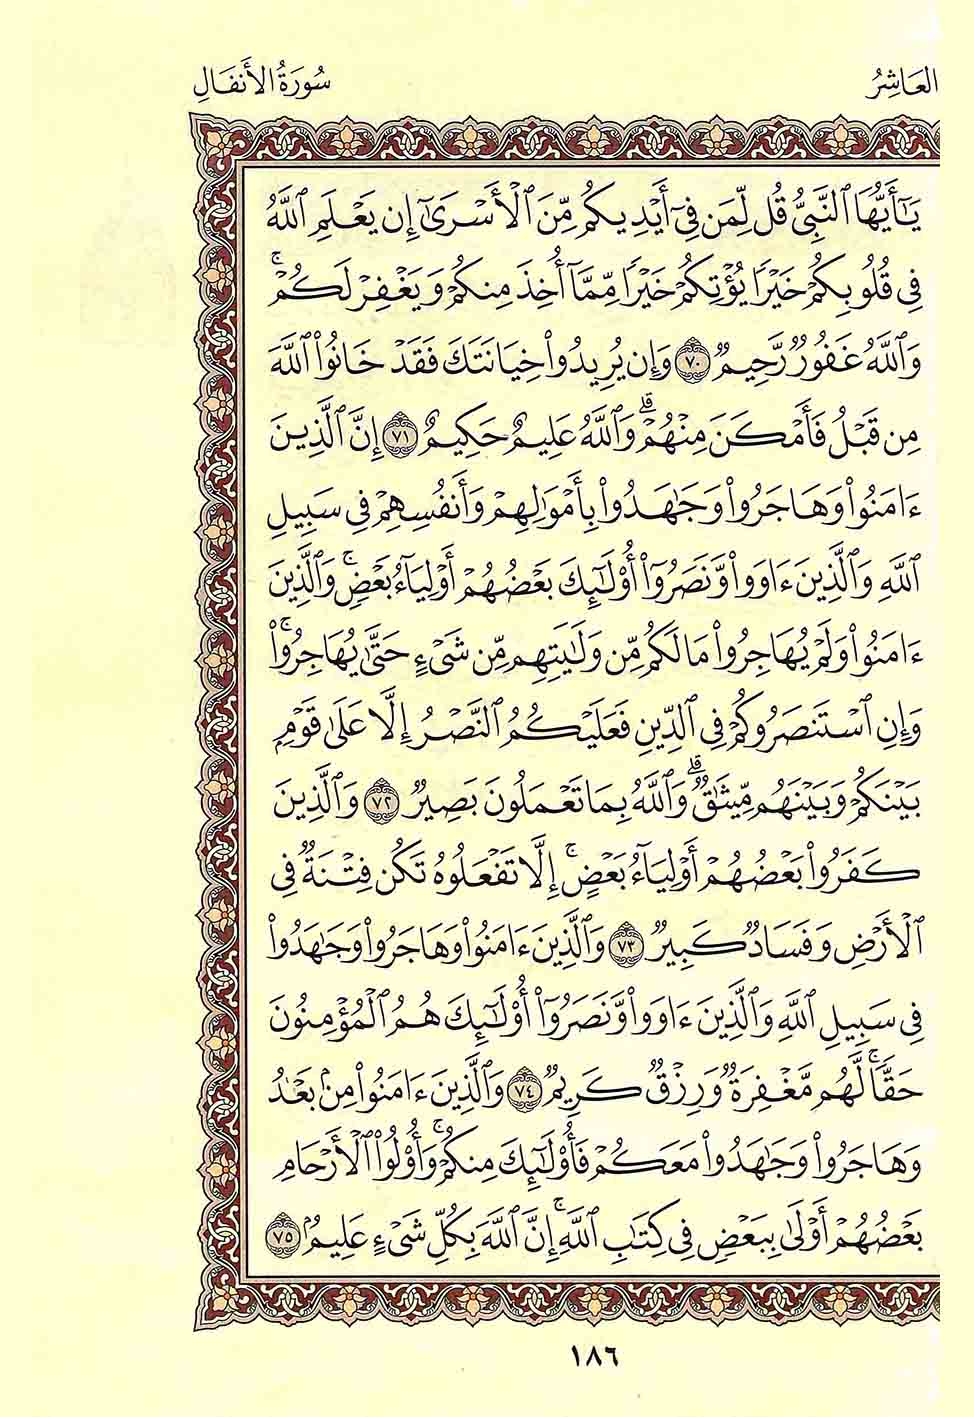 العَاشِرُ
سُورَةُ الأَنفَالِ
يَٰٓأَيُّهَا ٱلنَّبِيُّ قُل لِّمَن فِيٓ أَيْدِيكُم مِّنَ ٱلْأَسْرَىٰٓ إِن يَعْلَمِ ٱللَّهُ
فِي قُلُوبِكُمْ خَيْرًا يُؤْتِكُمْ خَيْرًا مِّمَّآ أُخِذَ مِنكُمْ وَيَغْفِرْ لَكُمْۚ
وَٱللَّهُ غَفُورٌ رَّحِيمٌ ٧٠ وَإِن يُرِيدُوا۟ خِيَانَتَكَ فَقَدْ خَانُوا۟ ٱللَّهَ
مِن قَبْلُ فَأَمْكَنَ مِنْهُمْۗ وَٱللَّهُ عَلِيمٌ حَكِيمٌ ٧١ إِنَّ ٱلَّذِينَ
ءَامَنُوا۟ وَهَاجَرُوا۟ وَجَٰهَدُوا۟ بِأَمْوَٰلِهِمْ وَأَنفُسِهِمْ فِي سَبِيلِ
ٱللَّهِ وَٱلَّذِينَ ءَاوَوا۟ وَّنَصَرُوٓا۟ أُو۟لَٰٓئِكَ بَعْضُهُمْ أَوْلِيَآءُ بَعْضٍۚ وَٱلَّذِينَ
ءَامَنُوا۟ وَلَمْ يُهَاجِرُوا۟ مَا لَكُم مِّن وَلَٰيَتِهِم مِّن شَيْءٍ حَتَّىٰ يُهَاجِرُوا۟ۚ
وَإِنِ ٱسْتَنصَرُوكُمْ فِي ٱلدِّينِ فَعَلَيْكُمُ ٱلنَّصْرُ إِلَّا عَلَىٰ قَوْمٍۭ
بَيْنَكُمْ وَبَيْنَهُم مِّيثَٰقٌۗ وَٱللَّهُ بِمَا تَعْمَلُونَ بَصِيرٌ ٧٢ وَٱلَّذِينَ
كَفَرُوا۟ بَعْضُهُمْ أَوْلِيَآءُ بَعْضٍۚ إِلَّا تَفْعَلُوهُ تَكُن فِتْنَةٌ فِي
ٱلْأَرْضِ وَفَسَادٌ كَبِيرٌ ٧٣ وَٱلَّذِينَ ءَامَنُوا۟ وَهَاجَرُوا۟ وَجَٰهَدُوا۟
فِي سَبِيلِ ٱللَّهِ وَٱلَّذِينَ ءَاوَوا۟ وَّنَصَرُوٓا۟ أُو۟لَٰٓئِكَ هُمُ ٱلْمُؤْمِنُونَ
حَقًّاۚ لَّهُم مَّغْفِرَةٌ وَرِزْقٌ كَرِيمٌ ٧٤ وَٱلَّذِينَ ءَامَنُوا۟ مِنۢ بَعْدُ
وَهَاجَرُوا۟ وَجَٰهَدُوا۟ مَعَكُمْ فَأُو۟لَٰٓئِكَ مِنكُمْۚ وَأُو۟لُوا۟ ٱلْأَرْحَامِ
بَعْضُهُمْ أَوْلَىٰ بِبَعْضٍ فِي كِتَٰبِ ٱللَّهِۚ إِنَّ ٱللَّهَ بِكُلِّ شَيْءٍ عَلِيمٌۢ ٧٥
١٨٦